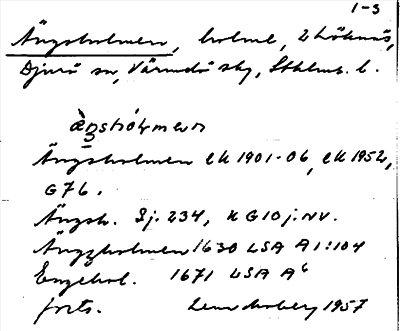 1-3
Ängsholmen, holme, 2 Löknäs,
Djurö sn, Värmdö skg, Sthlms l.
Ängsholmen ek 1901-06, ek 1952,
G 76.
Ängsh. Sj. 234, K G10 j. NV.
Ängzholmen 1630 LSA A1:104
Engehol. 1671 LSA A6
forts. Lena Moberg 1957